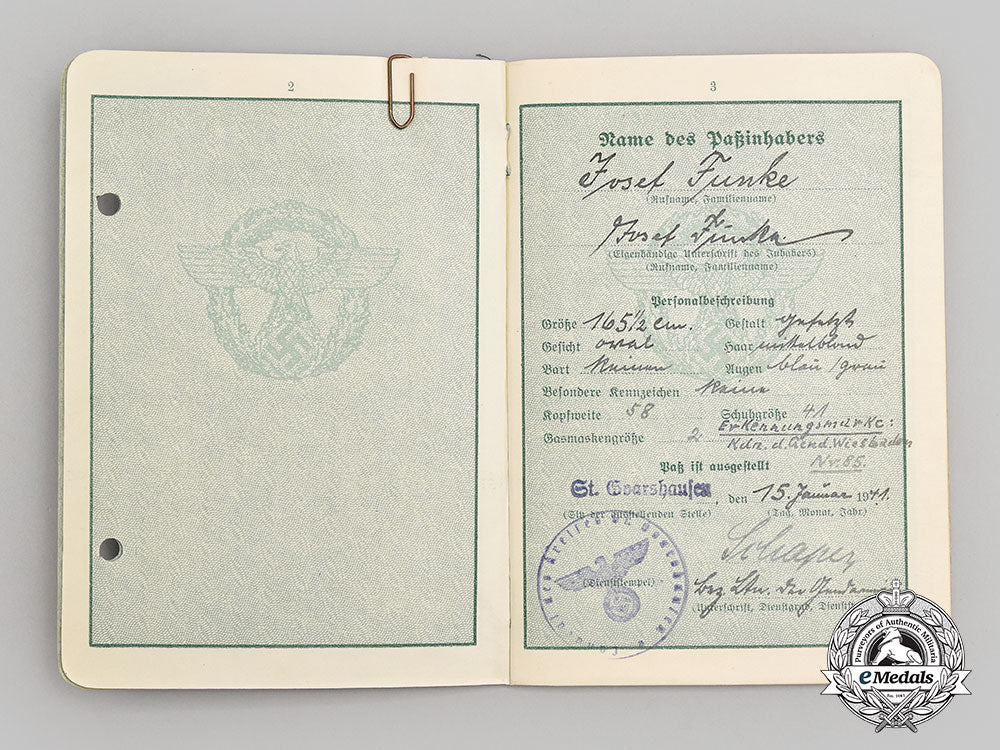 2
3
Name des Paßinhabers
Josef Funke
(Rufname, Familienname)
Josef Funke
(Eigenhändige Unterschrift des Inhabers)
(Rufname, Familienname)
Personalbeschreibung
Größe 165 1/2 cm. Gestalt gesetzt
Gesicht oval Haar mittelblond
Bart keinen Augen blau/grau
Besondere Kennzeichen keine
Kopfweite 58 Schuhgröße 41
Erkennungsmarke:
Gasmaskengröße 2 Kdr. d. Gend. Wiesbaden
Nr. 85.
Paß ist ausgestellt
St. Goarshausen, den 15. Januar 1941.
(Sitz der ausstellenden Stelle) (Tag, Monat, Jahr)
(Dienststempel)
Bez. Ltn. der Gendarmerie
(Unterschrift, Dienstgrad, Dienstst
Purveyors of Authentic Militaria
eMedals